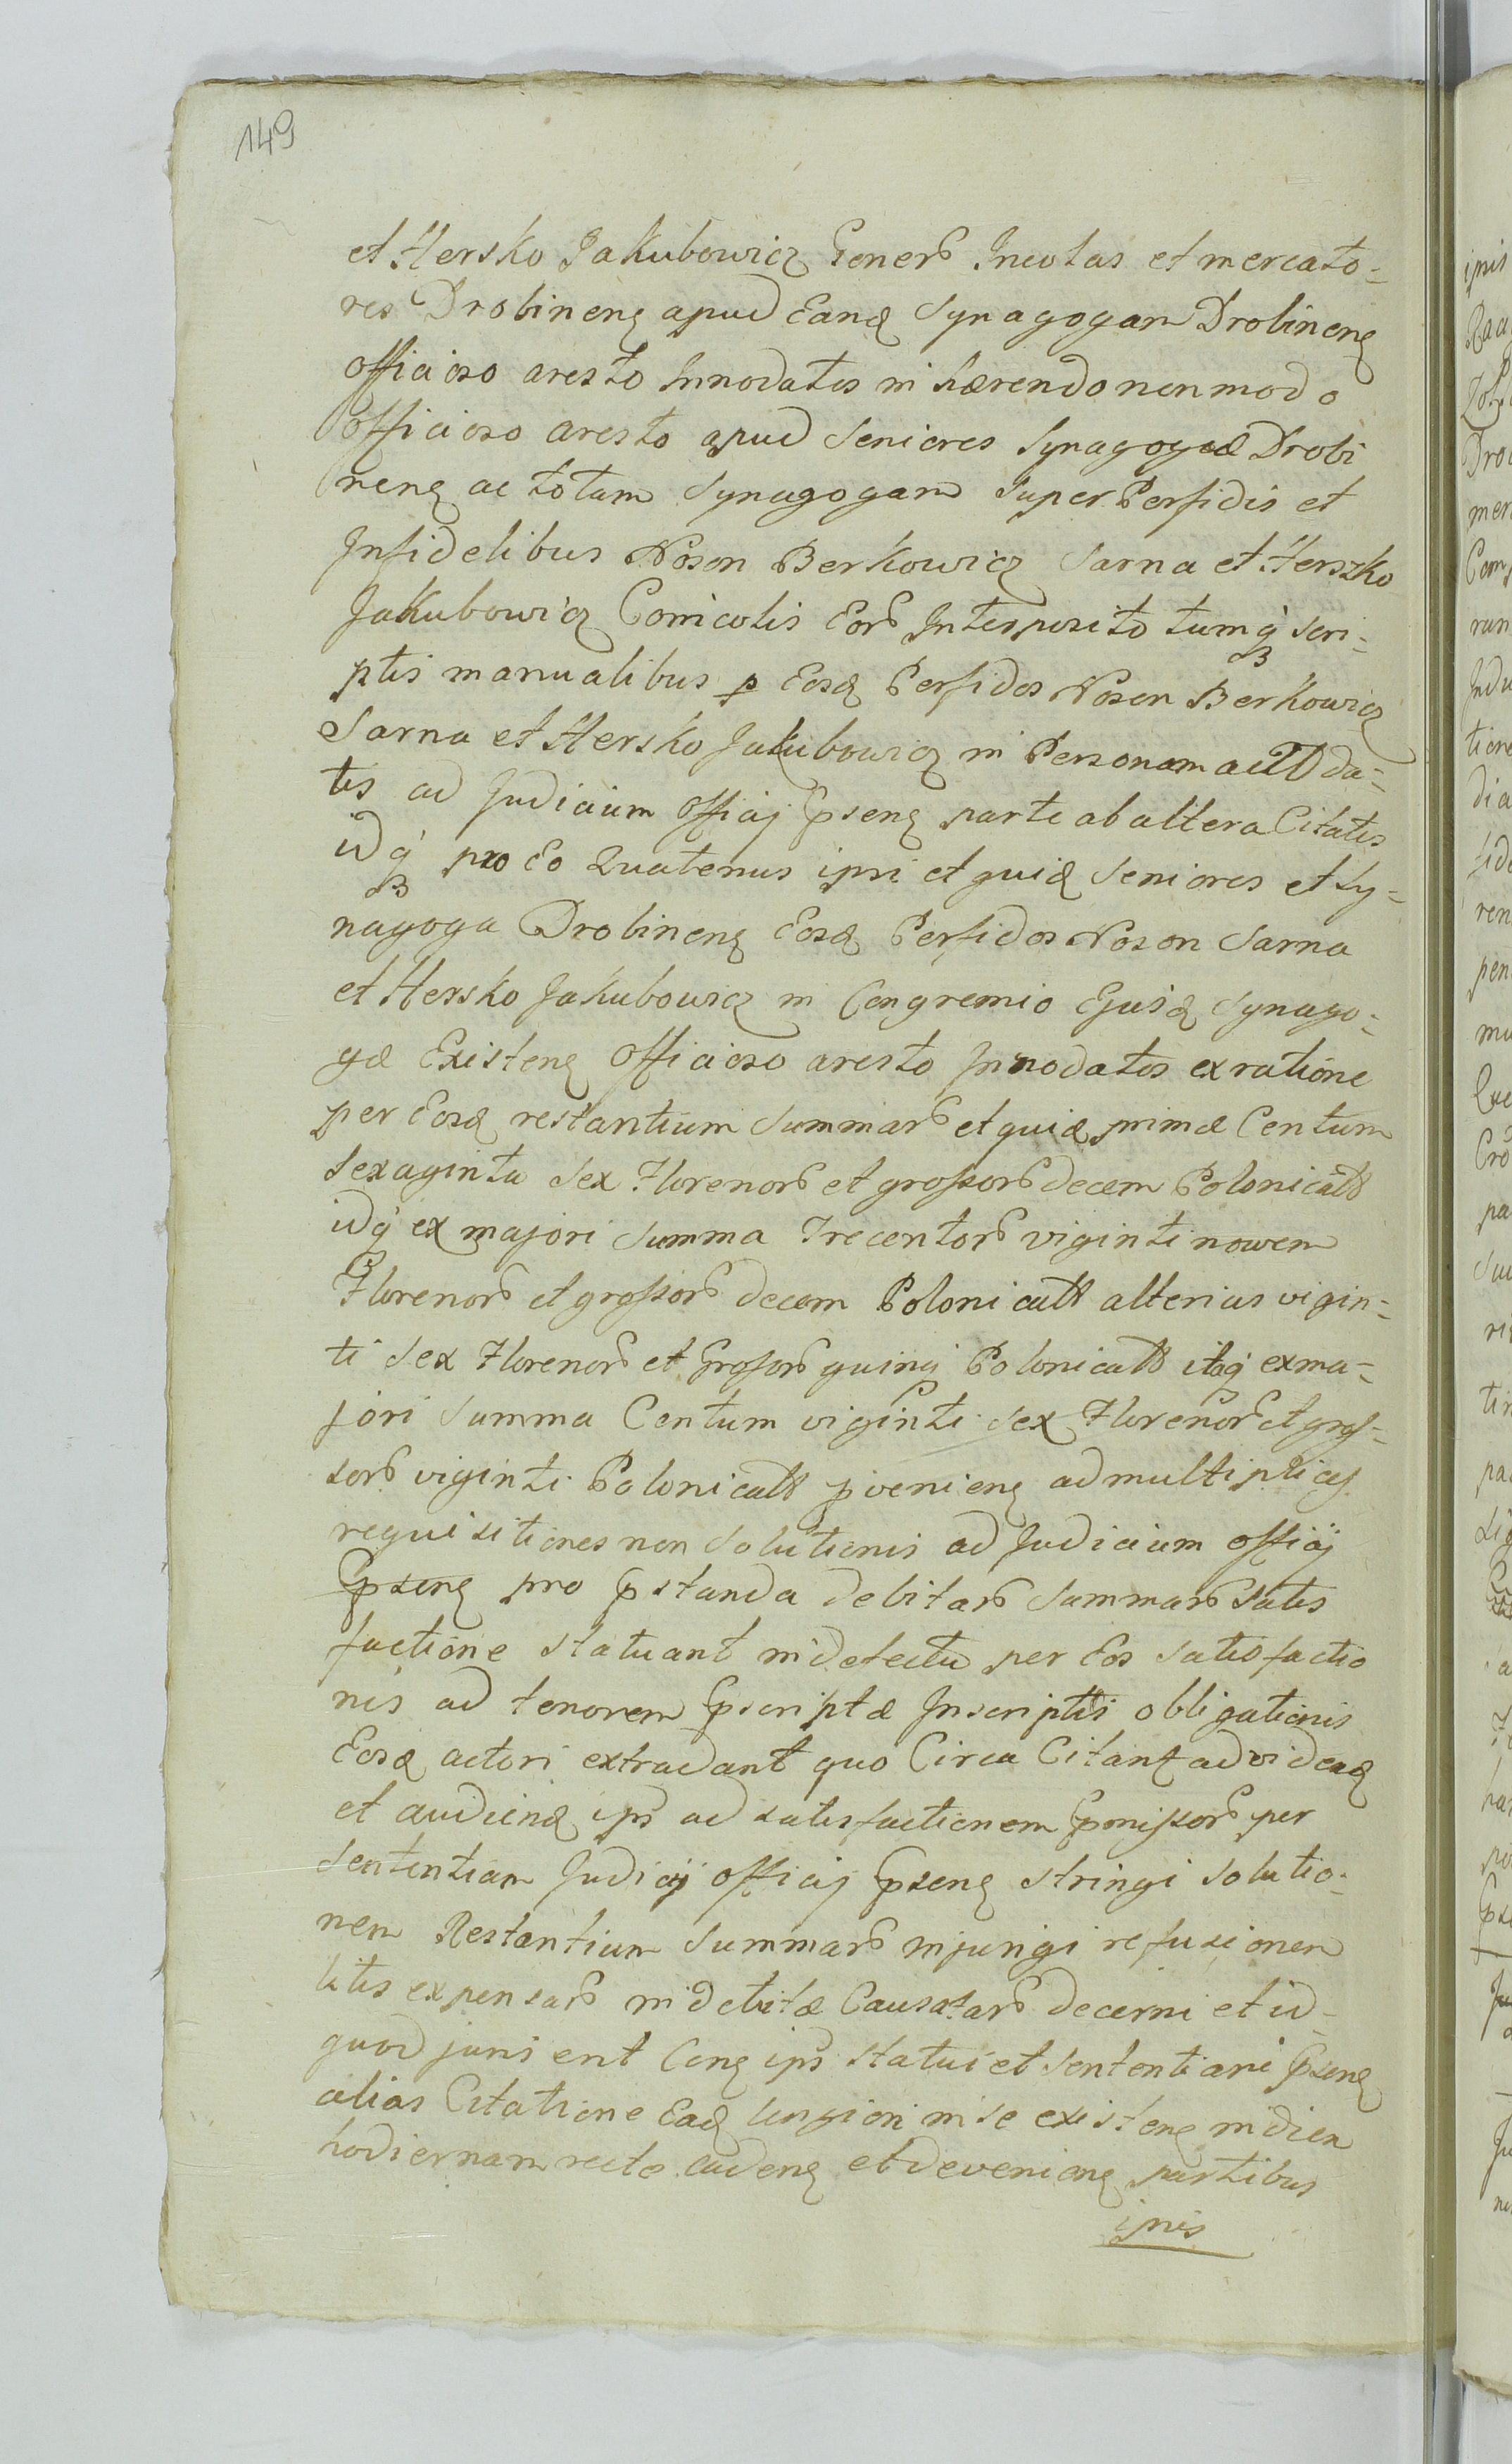 149
et Hersko Jakubowicz Generos Incolas et mercato=
res Drobinens apud Eand Synagogam Drobinens
officioso aresto Innodatos in hærendo non modo
officioso aresto apud Seniores Synagogæ Drobi
nens ac totam Synagogam super Perfidis et
Infidelibus Noson Berkowicz Sarna et Herszko
Jakubowicz Comicolis Eor Interposito tumq scri=
ptis manualibus p Eosd Perfidos Noson Berkowicz
Sarna et Hersko Jakubowicz in Personam act da=
tis ad Judicium Officij Pnseng parte ab altera Citatis
idq pro Eo Quatenus ipsi et quid Seniores et Sy=
nagoga Drobinens Eosd Perfidos Noson Sarna
et Hersko Jakubowicz in Congremio Ejusd Synago=
gæ Existens officioso aresto Innodatos ex ratione
per Eosd restantium Summar et quid primæ Centum
Sexaginta Sex Florenor et grossor decem Polonicall
idq ex majori Summa Trecentor viginti novem
Florenor et grossor decem Polonicall alterius vigin=
ti Sex Florenor et Grossor quinq Polonicall itaq ex ma=
jori Summa Centum viginti Sex Florenor et gros=
sor viginti Polonicall pveniens ad multiplices
requisitiones non Solutionis ad Judicium officij
Pnsens pro Pstanda debitar Summar Satis
factione statuant in defectu per Eos Satisfactio
nis ad tenorem Pscriptæ Inscriptis obligationis
Eosd actori extradant quo Circa Citant ad vidend
et audiend ips ad satisfactionem Pmissor per
Sententiam Judicij officij Pnsens stringi Solutio=
nem Restantium Summar injungi refusionem
litis expensar indebitæ Causatar decerni et id
quod juris erit Cong ips statui et Sententiari Psens
alias Citatione Ead longiori in se existens in diem
hodiernam recte cadens et deveniens partibus
ipsis